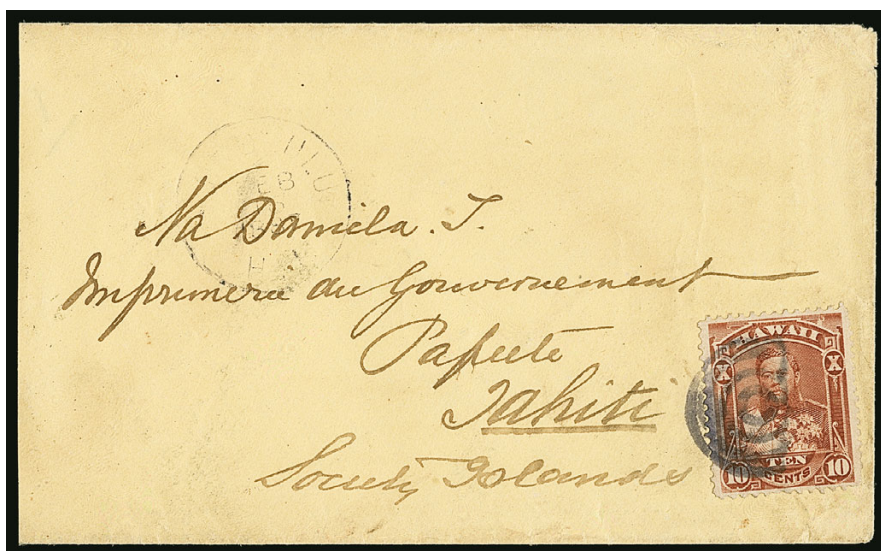 H.I.
Na Daniela. T.
Imprimerie du Gouvernement
Papeete
Tahiti
Society Islands
HAWAII
X X
10 TEN 10
CENTS